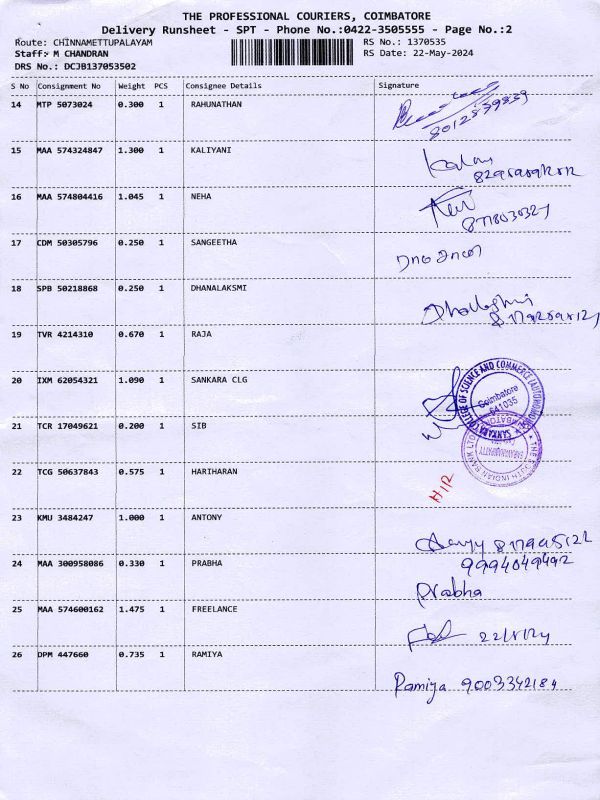 THE PROFESSIONAL COURIERS, COIMBATORE
Delivery Runsheet - SPT - Phone No.:0422-3505555 - Page No.:2
Route: CHINNAMETTUPALAYAM RS No.: 1370535
Staff: M CHANDRAN RS Date: 22-May-2024
DRS No.: DCJB137053502
S No Consignment No Weight PCS Consignee Details Signature
14 MTP 5073024 0.300 1 RAHUNATHAN
8012539859
15 MAA 574324847 1.300 1 KALIYANI
16 MAA 574804416 1.045 1 NEHA
17 CDM 50305796 0.250 1 SANGEETHA
18 SPB 50218868 0.250 1 DHANALAKSMI
19 TVR 4214310 0.670 1 RAJA
20 IXM 62054321 1.090 1 SANKARA CLG
SANKARA COLLEGE OF SCIENCE AND COMMERCE (AUTONOMOUS)
Coimbatore
641035
21 TCR 17049621 0.200 1 SIB
THE SOUTH INDIAN BANK LTD
22 TCG 50637843 0.575 1 HARIHARAN
23 KMU 3484247 1.000 1 ANTONY
24 MAA 300958086 0.330 1 PRABHA
9994049492
Prabha
25 MAA 574600162 1.475 1 FREELANCE
26 DPM 447660 0.735 1 RAMIYA
Ramiya 9003342184